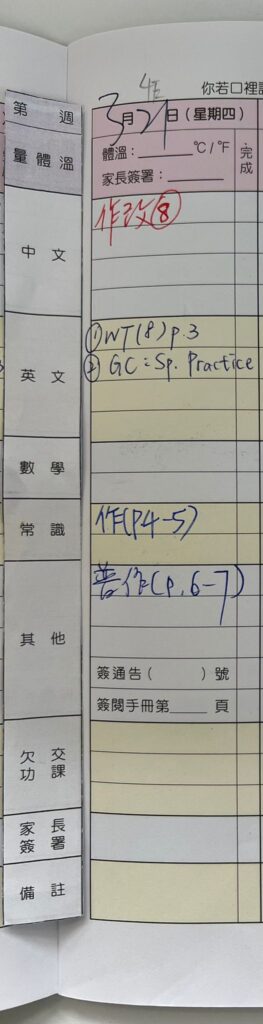 4E
你若口裡
3月21日(星期四)
第 週
量體溫
體溫：______℃/℉
家長簽署：______
完成
中文
作改⑧
英文
①WT(8)p.3
② GC：Sp. Practice
數學
常識
作(P4-5)
其他
普作(p.6-7)
簽通告( )號
簽閱手冊第____頁
欠交功課
家長簽署
備註